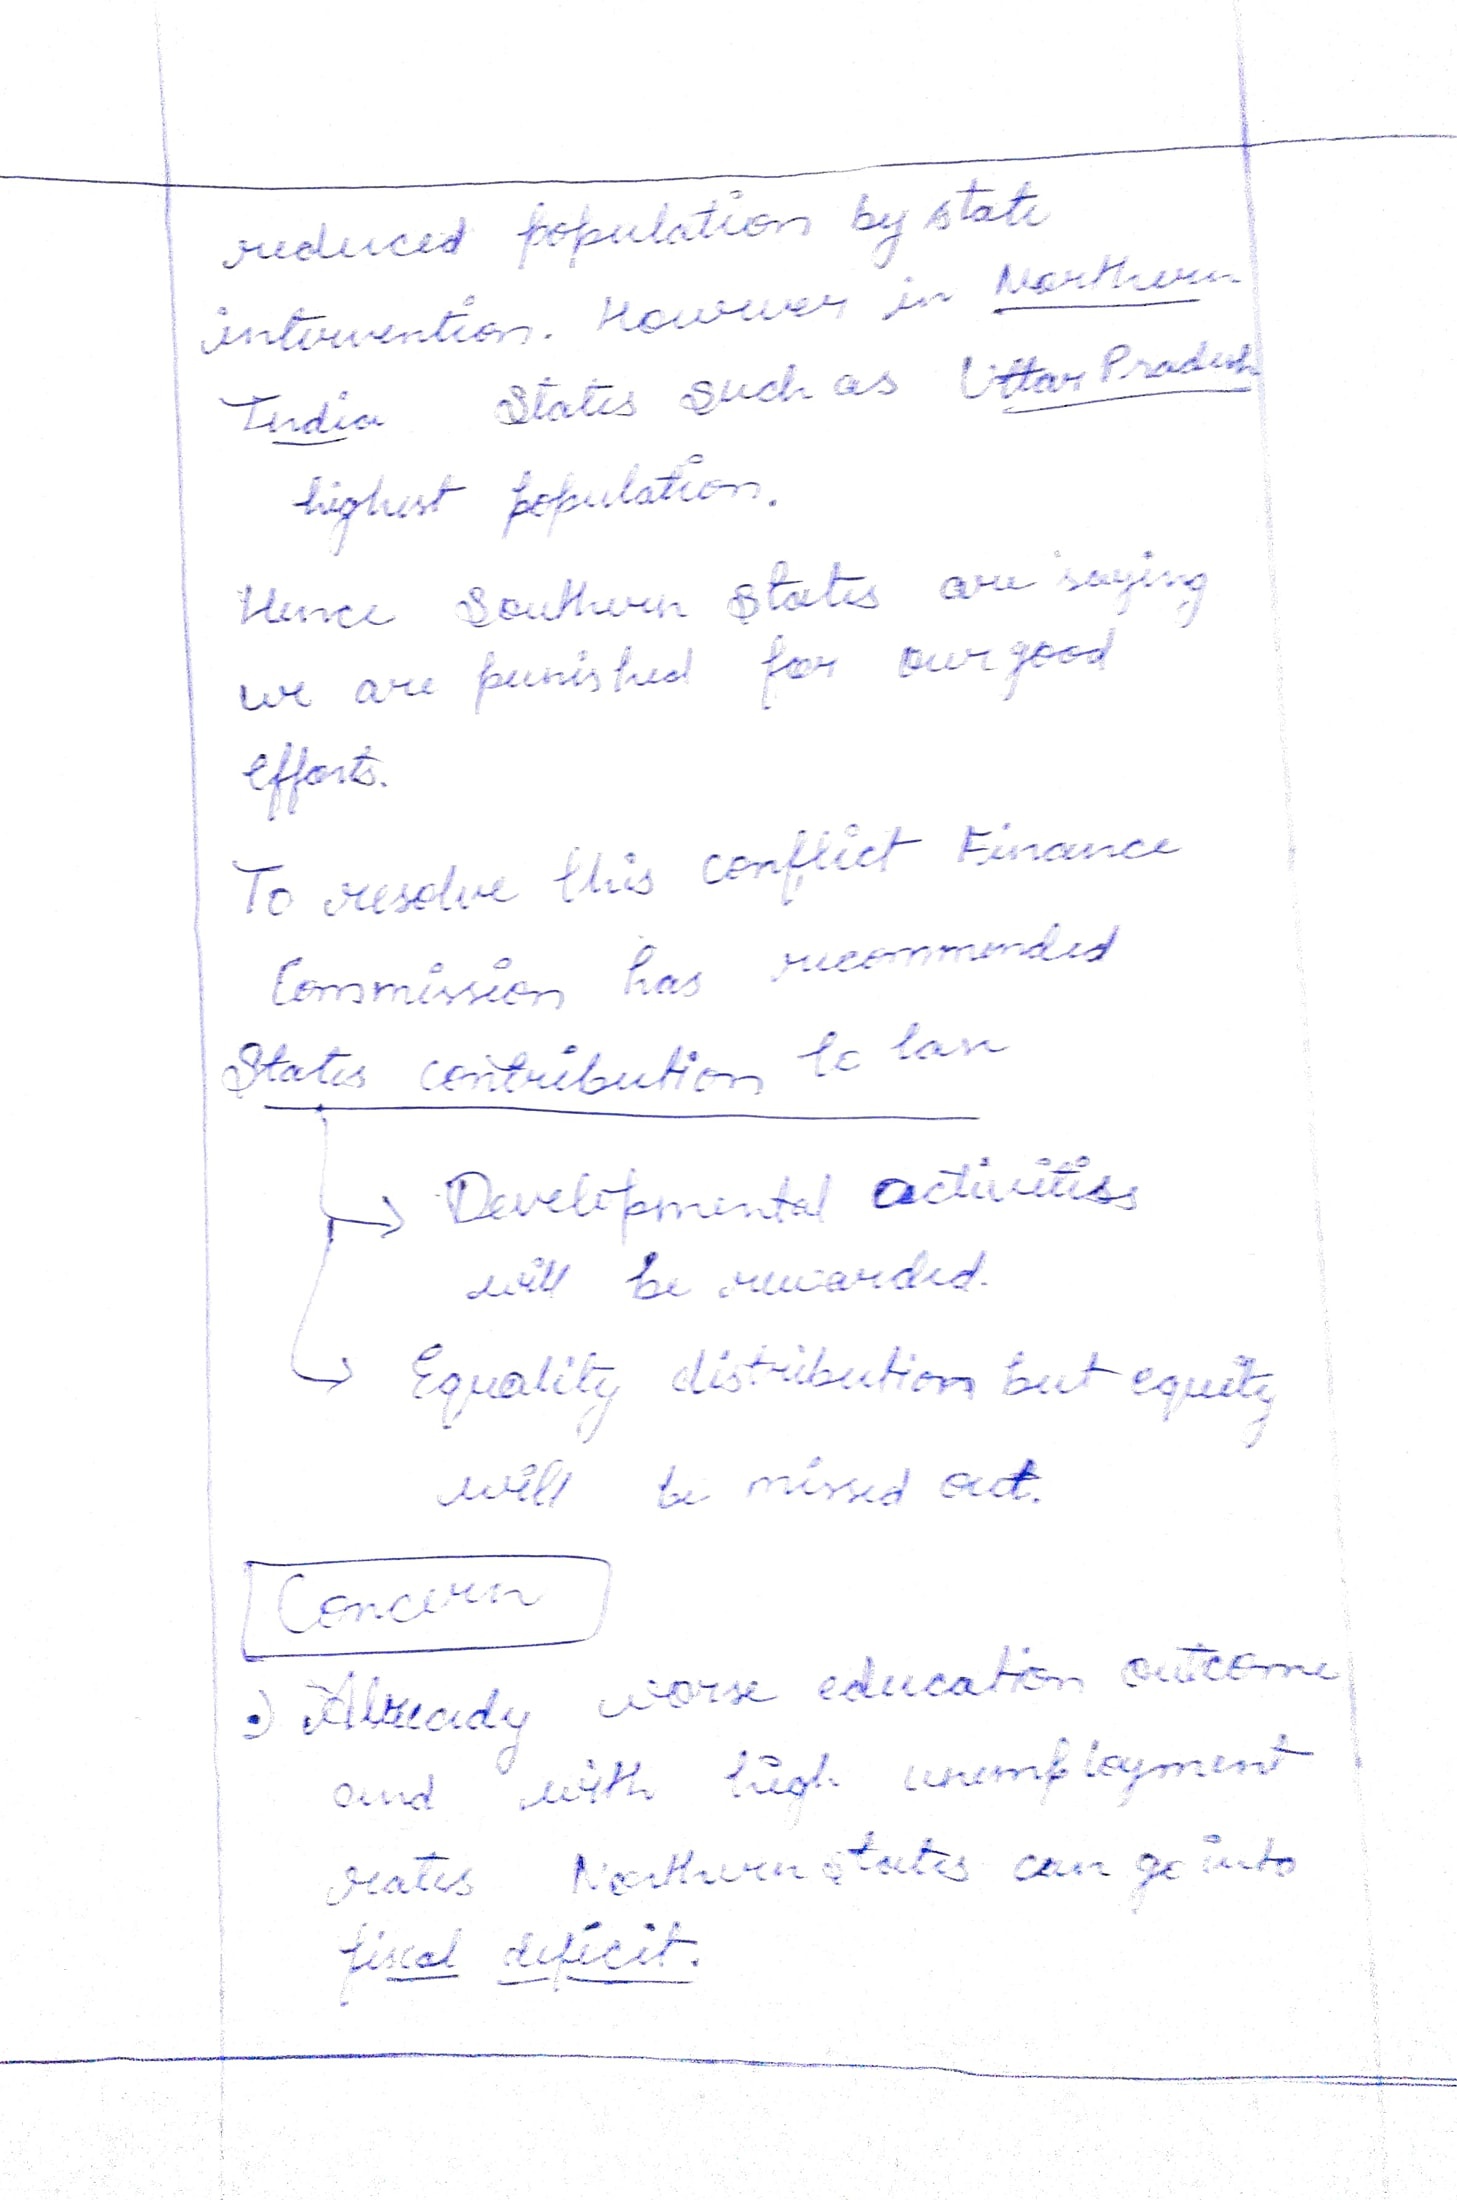 reduced population by state
intervention. However in Northern
India States such as Uttar Pradesh
highest population.
Hence Southern States are saying
we are punished for our good
efforts.
To resolve this conflict Finance
Commission has recommended
States contribution to
Developmental activities
will be rewarded.
Equality distribution but equity
will be missed out.
Concern
Already worse education outcome
and with high unemployment
rates Northern states can go into
fiscal deficit.